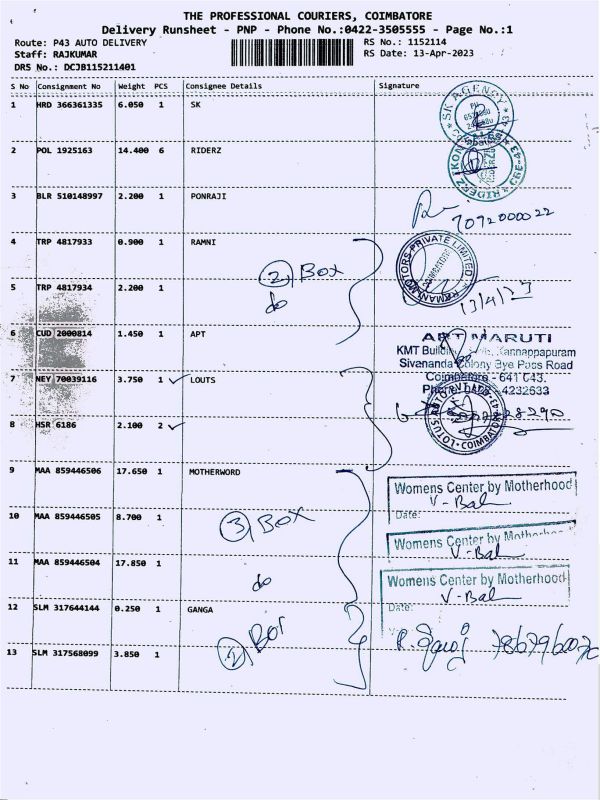 THE PROFESSIONAL COURIERS, COIMBATORE
Delivery Runsheet - PNP - Phone No.:0422-3505555 - Page No.:1
Route: P43 AUTO DELIVERY RS No.: 1152114
Staff: RAJKUMAR RS Date: 13-Apr-2023
DRS No.: DCJB115211401
S No Consignment No Weight PCS Consignee Details Signature
1 HRD 366361335 6.050 1 SK
SK AGENCY
2 POL 1925163 14.400 6 RIDERZ
RIDERZ CBE-43
3 BLR 510148997 2.200 1 PONRAJI
7092000022
4 TRP 4817933 0.900 1 RAMNI
2 Box
MOTORS PRIVATE LIMITED
COIMBATORE
5 TRP 4817934 2.200 1
do
13/4/23
6 CUD 2000814 1.450 1 APT
MARUTI
KMT Building Kannappapuram
Sivananda Colony Bye Pass Road
Coimbatore - 641 043.
4232633
7 NEY 70039116 3.750 1 LOUTS
8 HSR 6186 2.100 2
LOTUS COIMBATORE
9 MAA 859446506 17.650 1 MOTHERWORD
Womens Center by Motherhood
V-Bal
Date:
10 MAA 859446505 8.700 1
3 Box
Womens Center by Motherhood
V-Bal
11 MAA 859446504 17.850 1
do
Womens Center by Motherhood
V-Bal
Date:
12 SLM 317644144 0.250 1 GANGA
2 Box
13 SLM 317568099 3.850 1